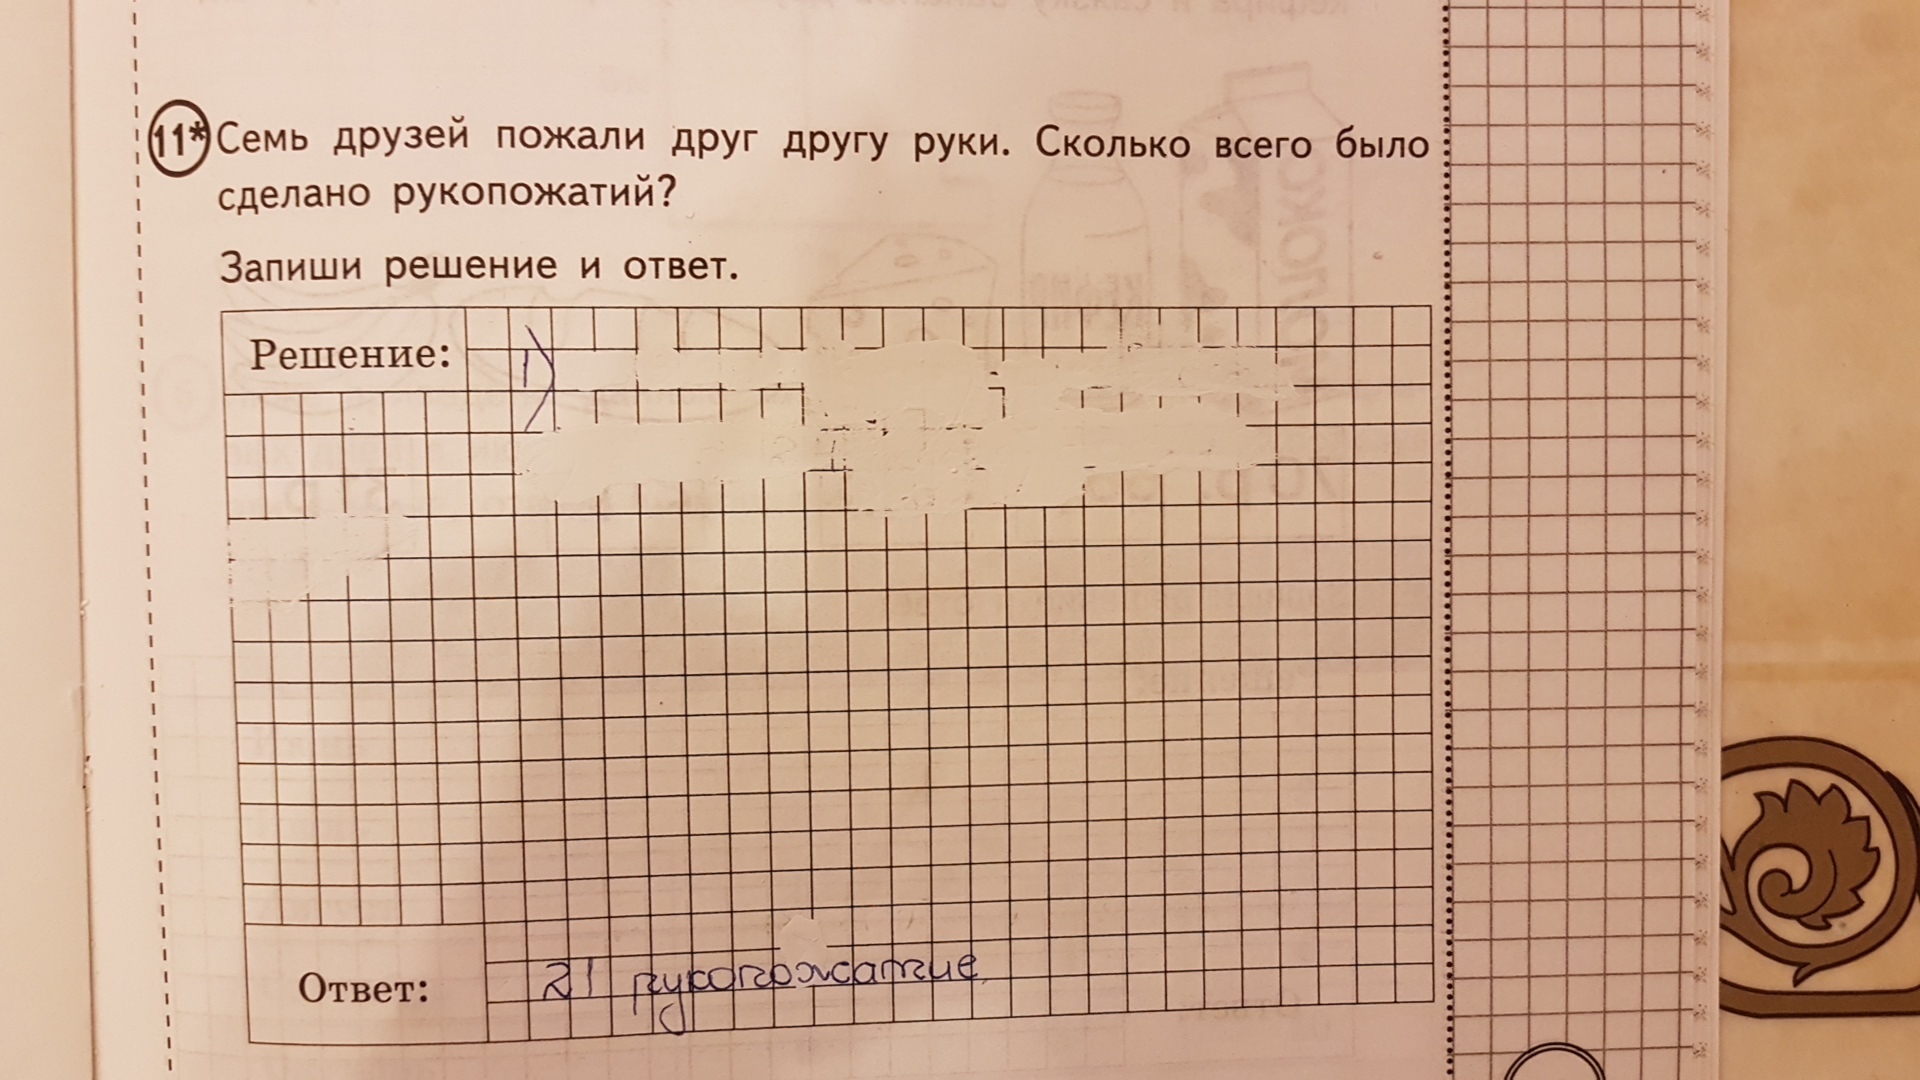 11* Семь друзей пожали друг другу руки. Сколько всего было
сделано рукопожатий?
Запиши решение и ответ.
Решение: 1)
Ответ: 21 рукопожатие